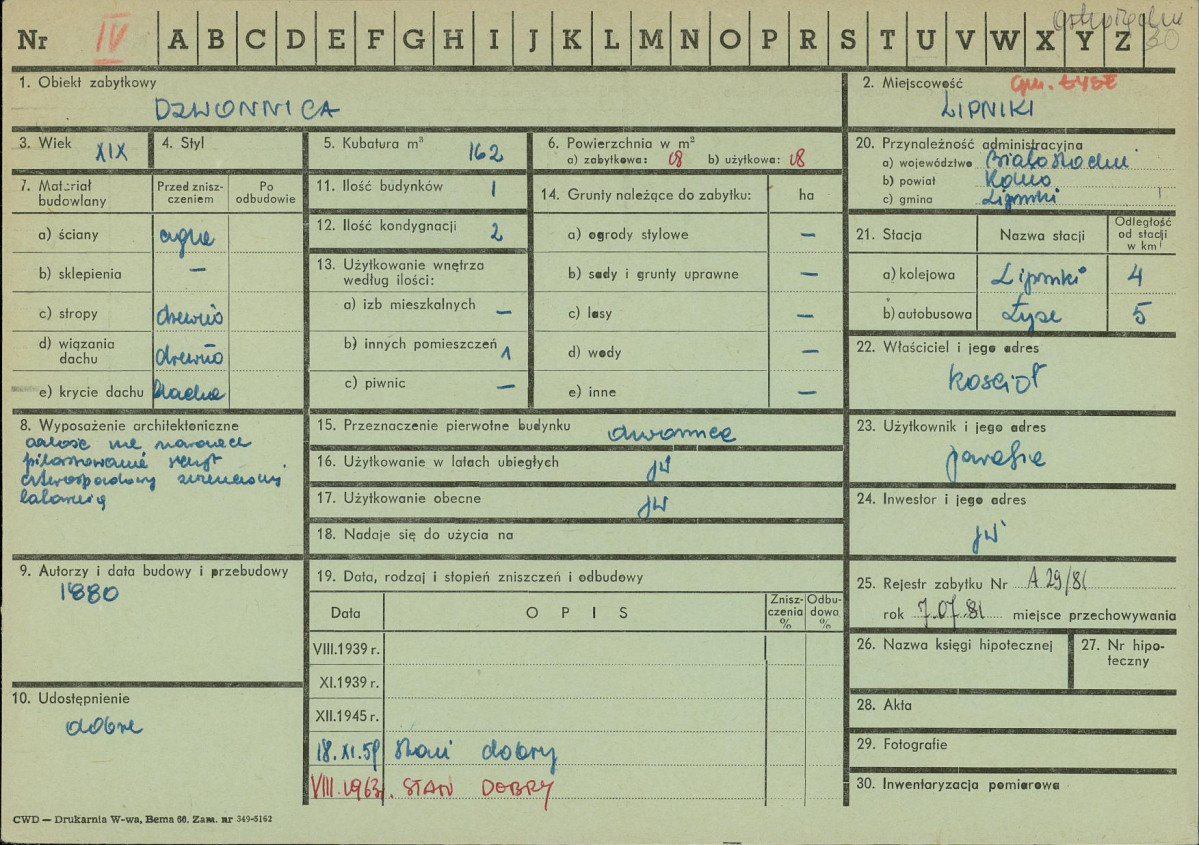 Nr IV A B C D E F G H I J K L M N O P R S T U V W X Y Z 30
1. Obiekt zabytkowy
DZWONNICA
2. Miejscowość gm. ŁYSE
LIPNIKI
3. Wiek XIX
4. Styl
5. Kubatura m³ 162
6. Powierzchnia w m²
a) zabytkowa: 18 b) użytkowa: 18
20. Przynależność administracyjna
a) województwo Białostockie
b) powiat Kolno
c) gmina Lipniki
7. Materiał budowlany
Przed zniszczeniem
Po odbudowie
a) ściany cegła
b) sklepienia —
c) stropy drewno
d) wiązania dachu drewno
e) krycie dachu blacha
11. Ilość budynków 1
12. Ilość kondygnacji 2
13. Użytkowanie wnętrza według ilości:
a) izb mieszkalnych —
b) innych pomieszczeń 1
c) piwnic —
14. Grunty należące do zabytku: ha
a) ogrody stylowe —
b) sady i grunty uprawne —
c) lasy —
d) wody —
e) inne —
21. Stacja
Nazwa stacji
Odległość od stacji w km
a) kolejowa Lipniki 4
b) autobusowa Łyse 5
22. Właściciel i jego adres
Kościół
8. Wyposażenie architektoniczne
na narożach
pilastrowanie szczyt
czterospadowy zwieńczony
latarnią
15. Przeznaczenie pierwotne budynku dzwonnica
16. Użytkowanie w latach ubiegłych jw
17. Użytkowanie obecne jw
18. Nadaje się do użycia na
23. Użytkownik i jego adres
parafia
24. Inwestor i jego adres
jw
9. Autorzy i data budowy i przebudowy
1880
10. Udostępnienie
dobre
19. Data, rodzaj i stopień zniszczeń i odbudowy
Data OPIS Zniszczenia % Odbudowa %
VIII.1939 r.
XI.1939 r.
XII.1945 r.
18.XI.59 stan dobry
VIII.1963r. STAN DOBRY
25. Rejestr zabytku Nr A 29/81
rok 7.07.81 miejsce przechowywania
26. Nazwa księgi hipotecznej
27. Nr hipoteczny
28. Akta
29. Fotografie
30. Inwentaryzacja pomiarowa
CWD — Drukarnia W-wa, Bema 60. Zam. nr 349-5162